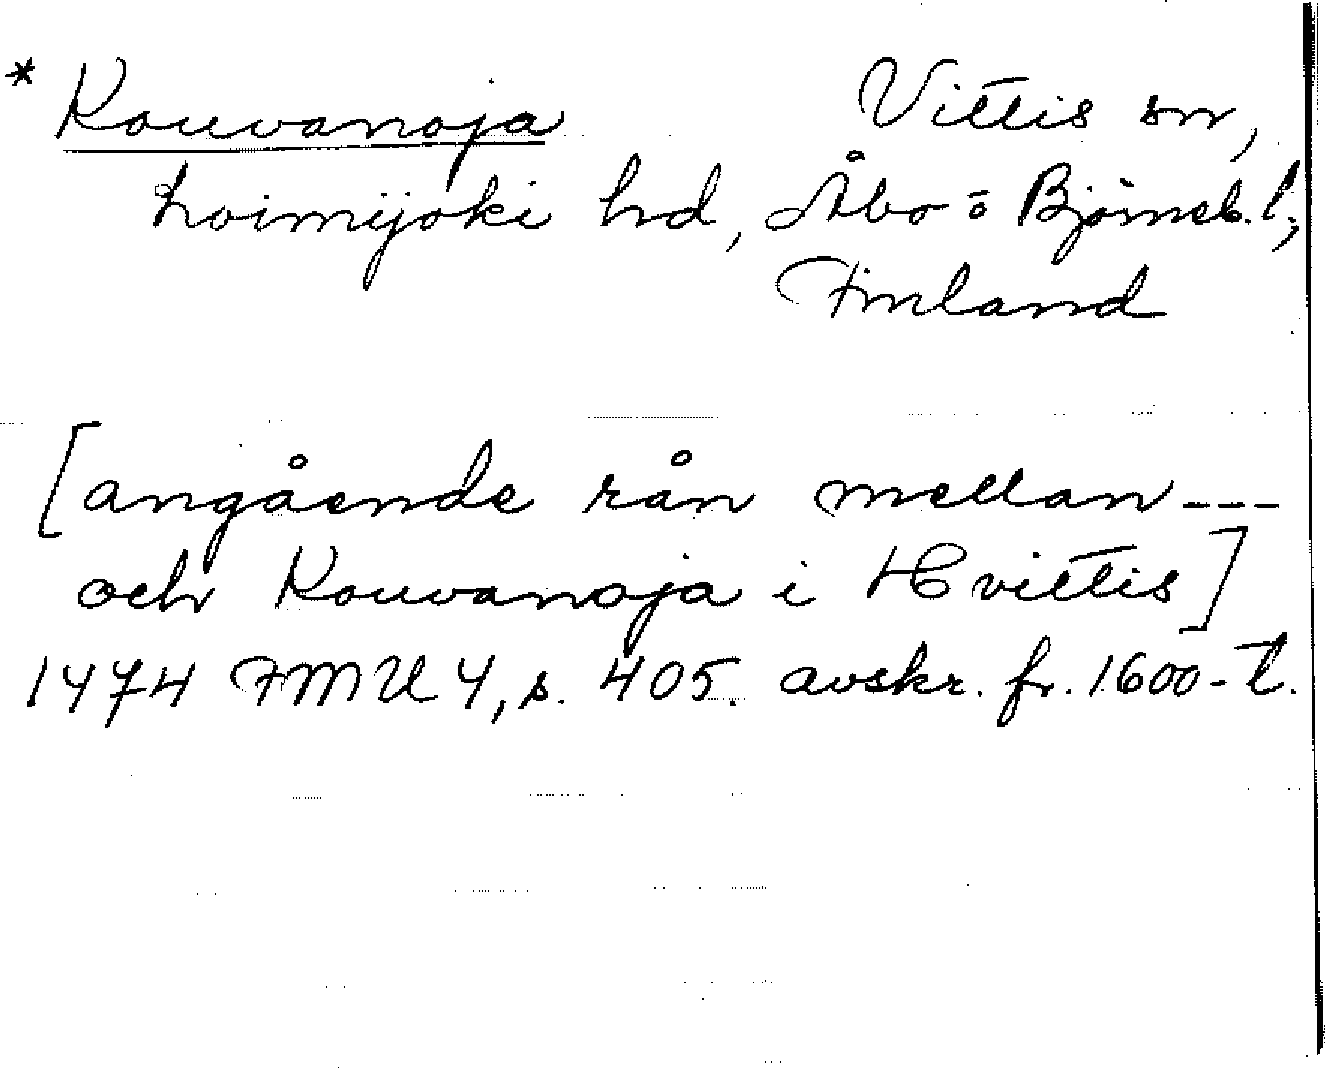 * Kouvanoja Vittis sn,
Loimijoki hd, Åbo o Björneb. l;
Finland
[angående rån mellan ---
och Kouvanoja i Hvittis]
1474 FMU 4, s. 405. avskr. fr. 1600-t.